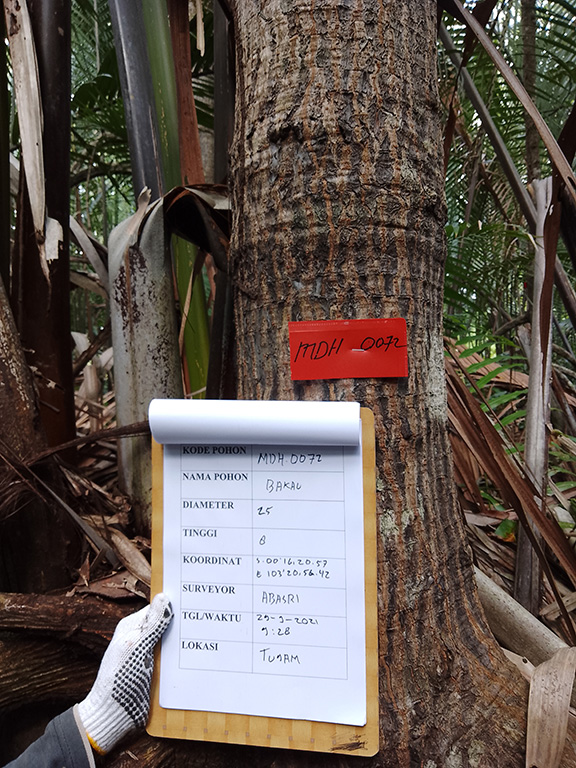 MDH 0072
KODE POHON MDH.0072
NAMA POHON BAKAU
DIAMETER 25
TINGGI 8
KOORDINAT S.00'16.20.57
E 103'20.56.42
SURVEYOR ABASRI
TGL/WAKTU 29-9-2021
9:28
LOKASI